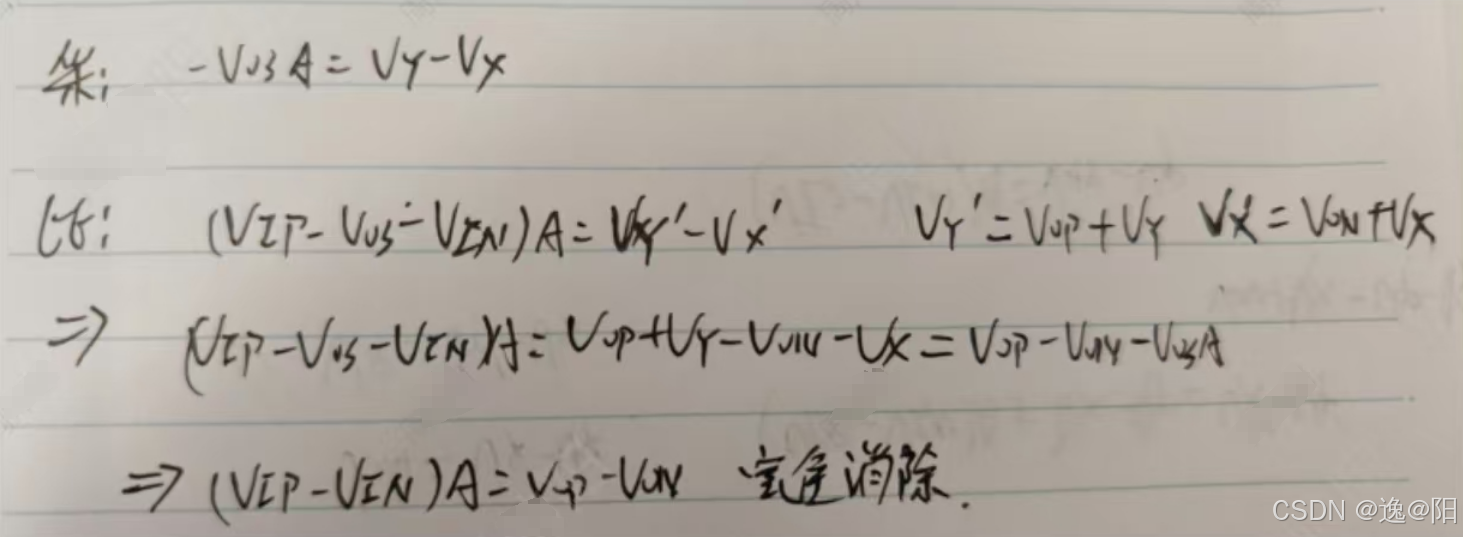 采: -VosA = VY-VX
比: (VIP-Vos-VIN)A = VY'-VX' VY'=VOP+VY VX'=VON+VX
⇒ (VIP-Vos-VIN)A = VOP+VY-VON-VX = VOP-VON-VosA
⇒ (VIP-VIN)A = VOP-VON 完全消除.
CSDN @逸@阳